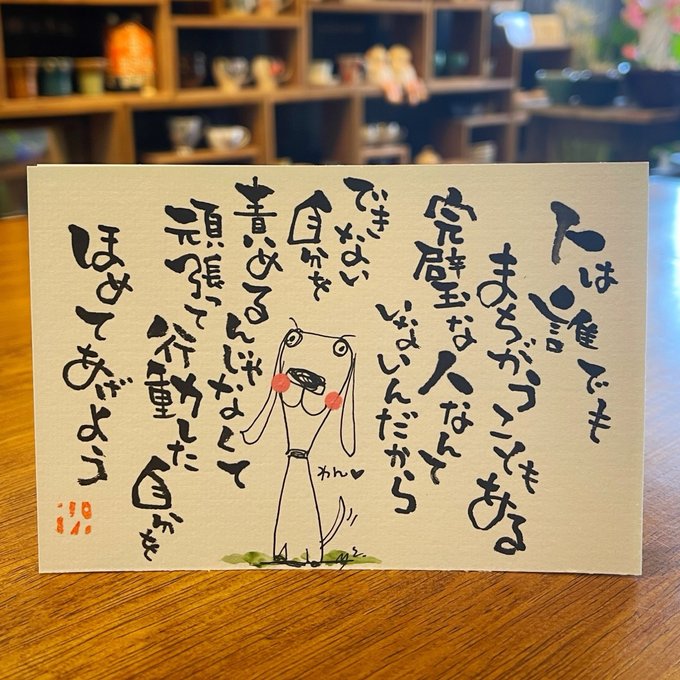 人は誰でも
まちがうこともある
完璧な人なんて
いないんだから
できない
自分を
責めるんじゃなくて
頑張って行動した自分を
ほめてあげよう
わん♥